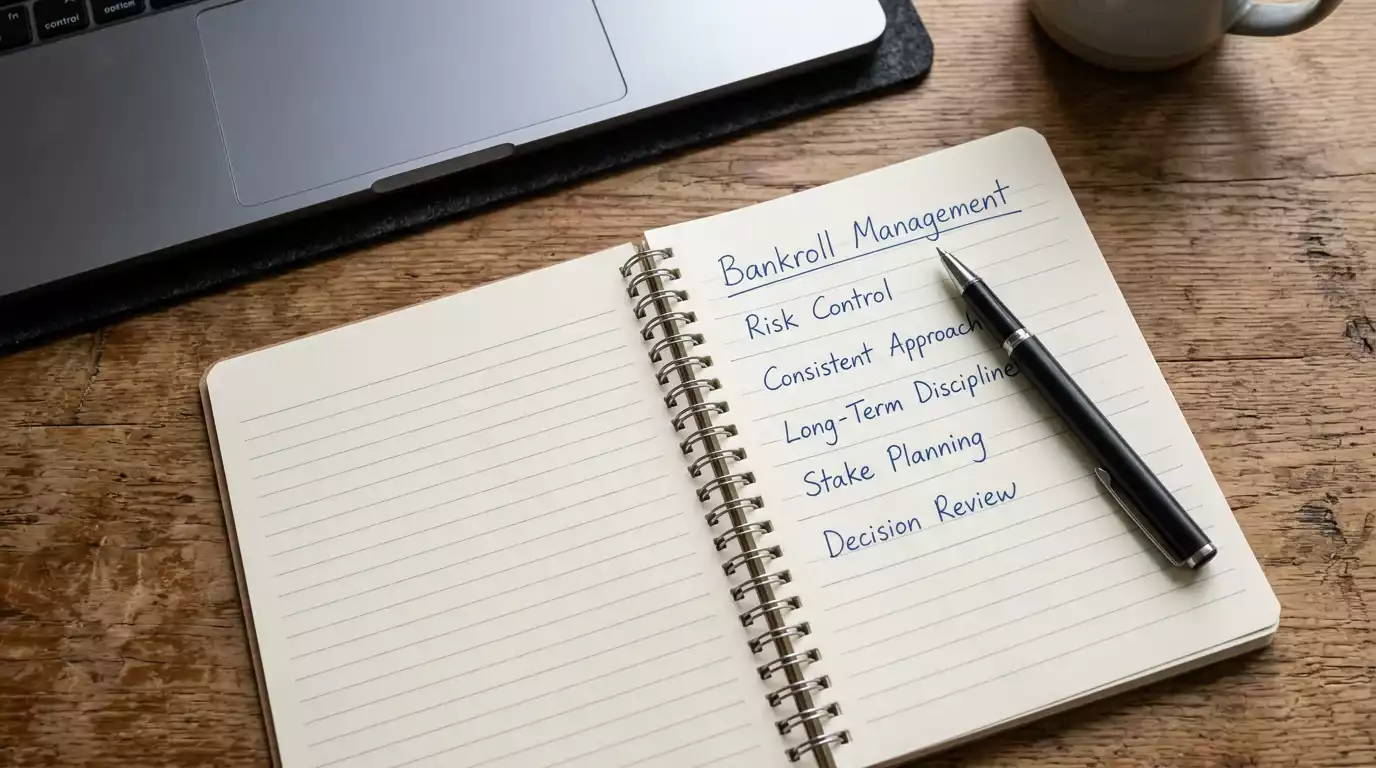 fn
control
option
Bankroll Management
Risk Control
Consistent Approach
Long-Term Discipline
Stake Planning
Decision Review